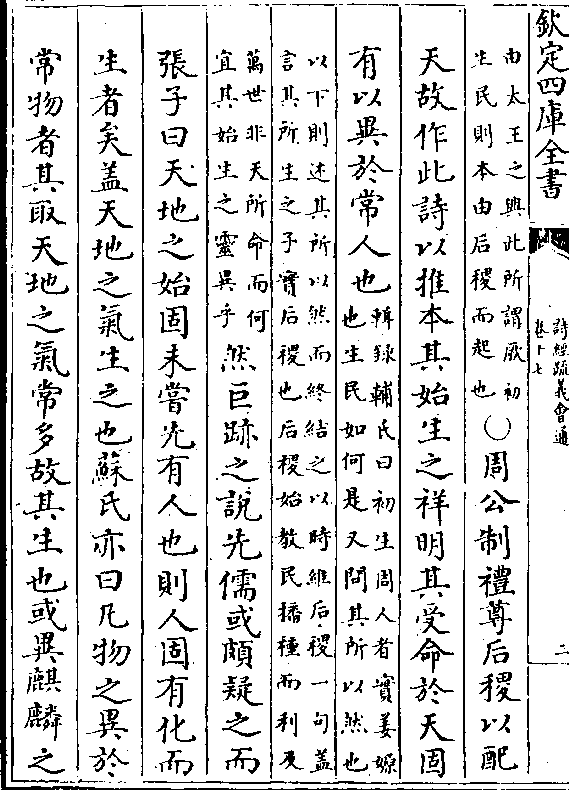 欽定四庫全書
詩經疏義會通
卷十七
二
由太王之興此所謂厥初
生民則本由后稷而起也
○周公制禮尊后稷以配
天故作此詩以推本其始生之祥明其受命於天固
有以異於常人也
輯錄輔氏曰初生周人者實姜嫄
也生民如何是又問其所以然也
以下則述其所以然而終結之以時維后稷一句蓋
言其所生之子實后稷也后稷始教民播種而利及
萬世非天所命而何
宜其始生之靈異乎
然巨跡之說先儒或頗疑之而
張子曰天地之始固未嘗先有人也則人固有化而
生者矣蓋天地之氣生之也蘇氏亦曰凡物之異於
常物者其取天地之氣常多故其生也或異麒麟之